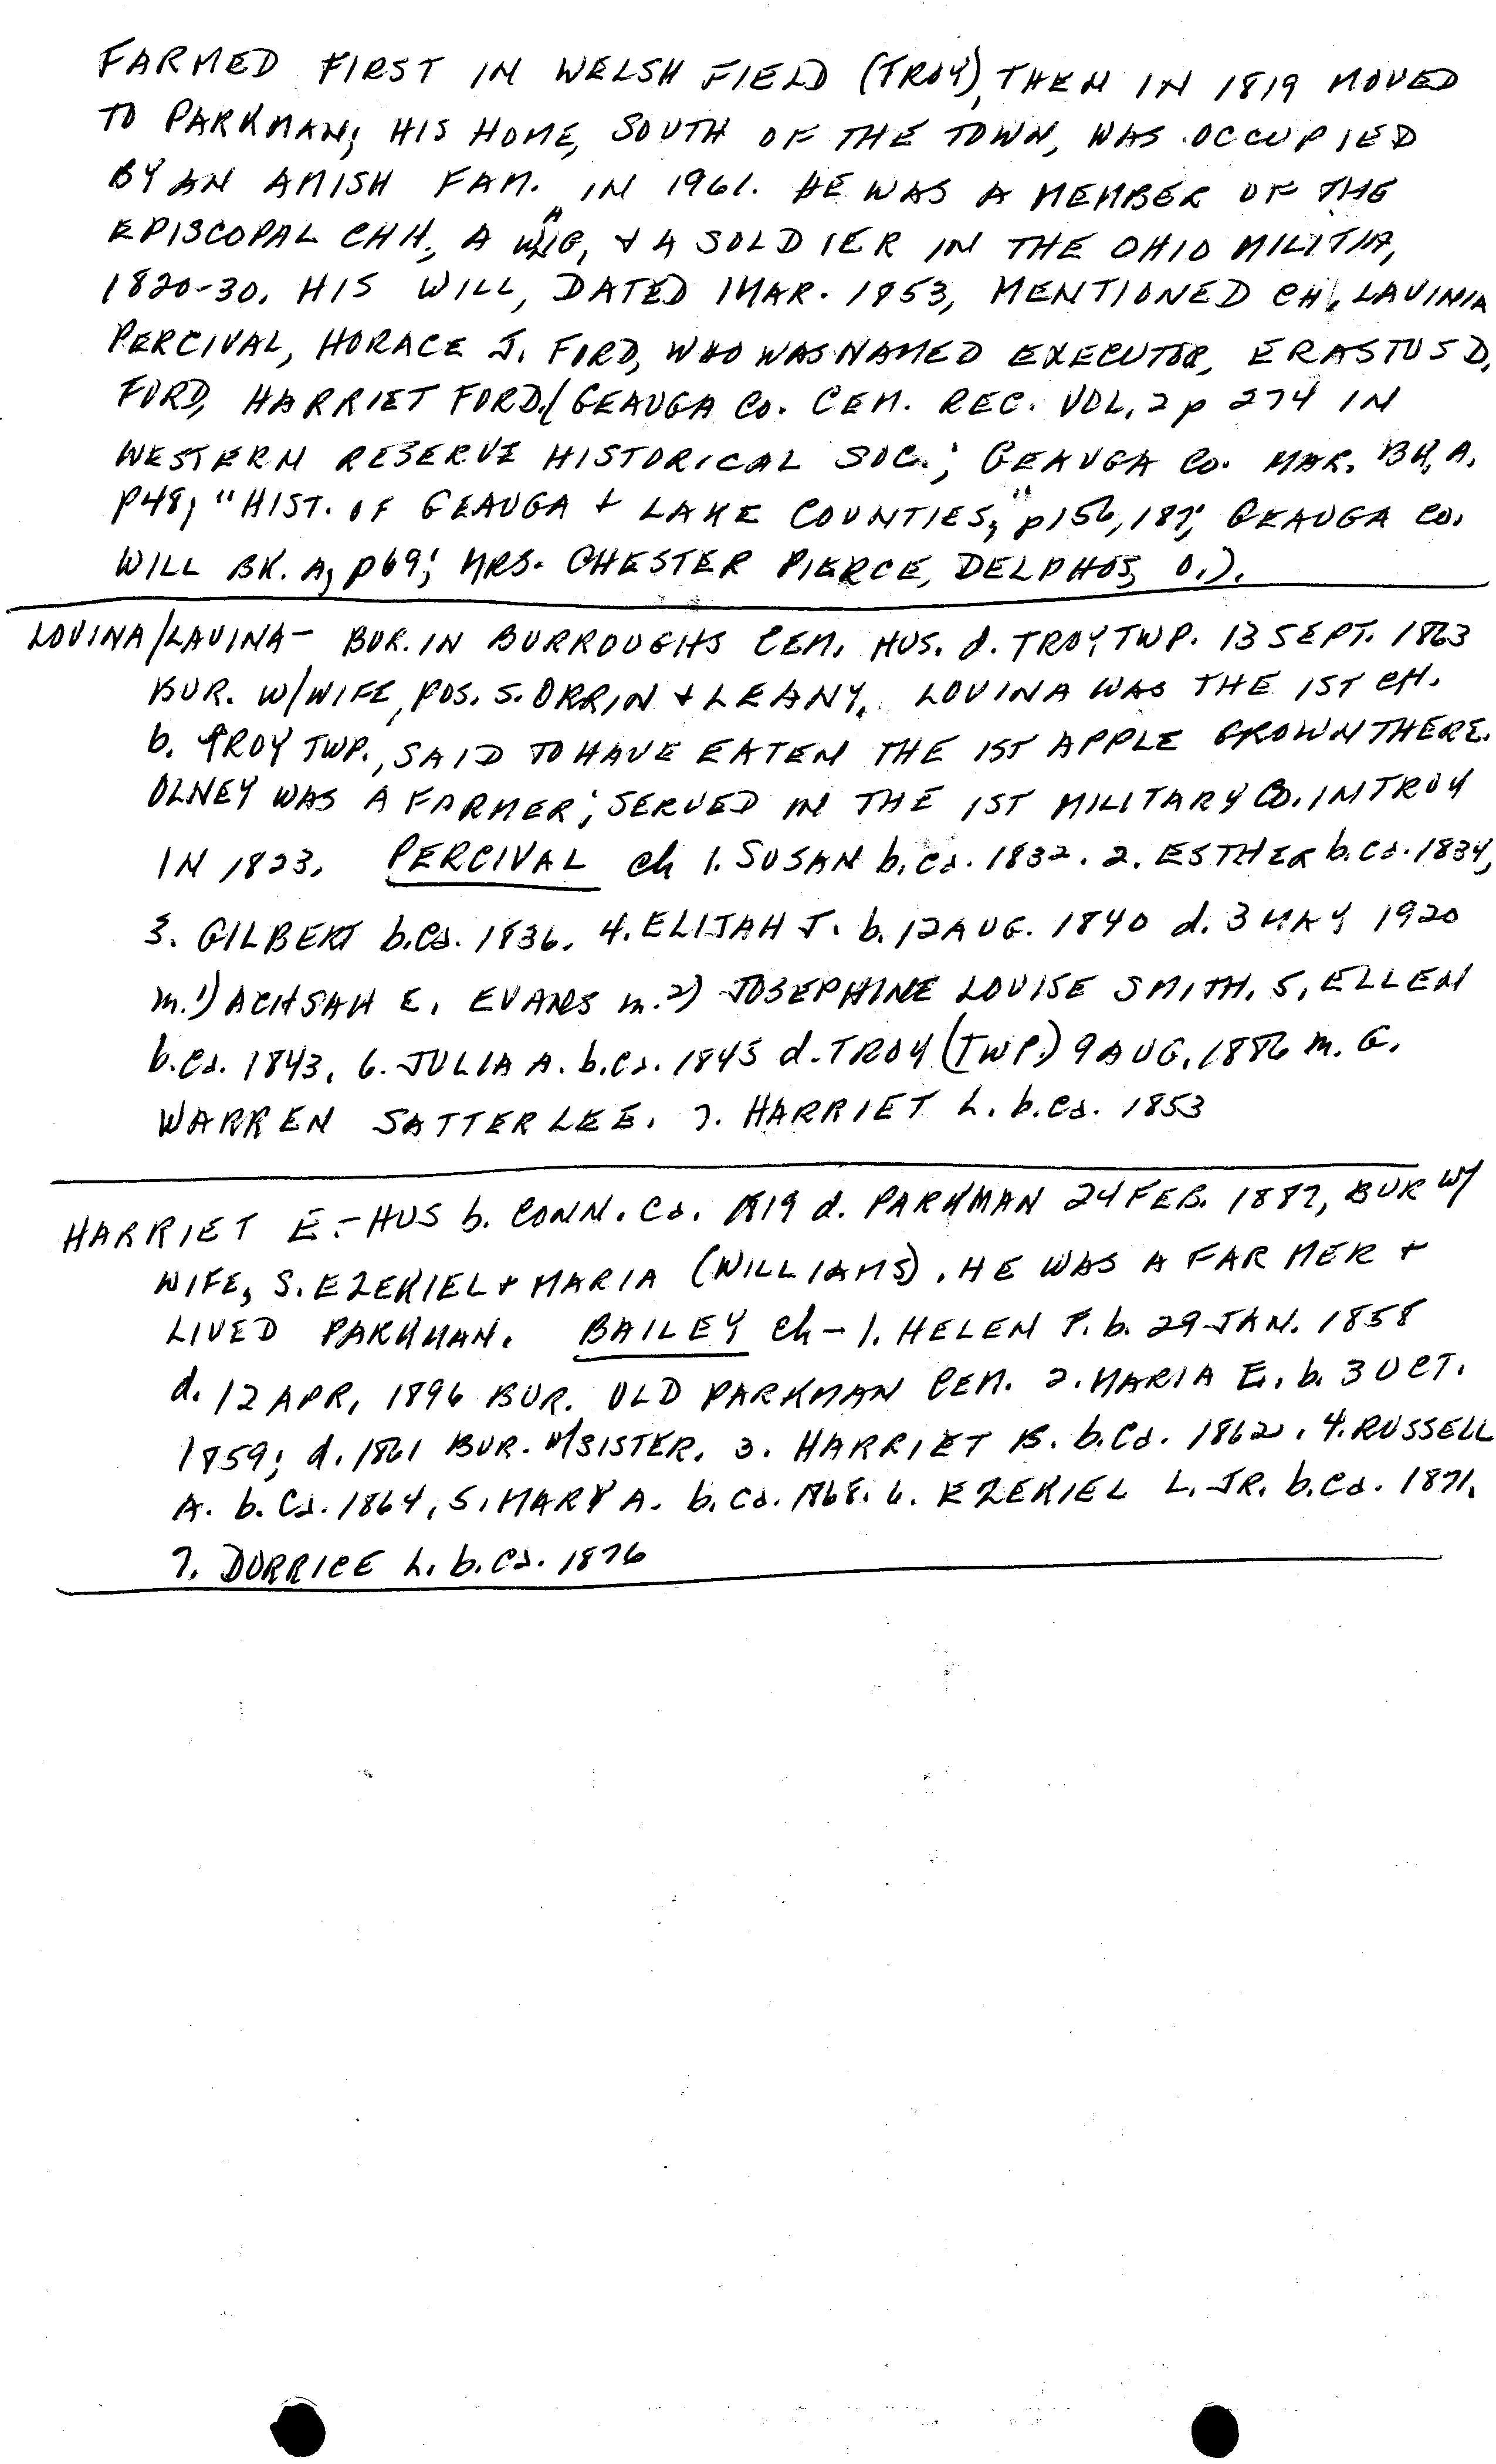 FARMED FIRST IN WELSH FIELD (TROY), THEN IN 1819 MOVED
TO PARKMAN; HIS HOME, SOUTH OF THE TOWN, WAS OCCUPIED
BY AN AMISH FAM. IN 1961. HE WAS A MEMBER OF THE
EPISCOPAL CHH., A WHIG, & A SOLDIER IN THE OHIO MILITIA,
1820-30. HIS WILL, DATED 1 MAR. 1853, MENTIONED CH. LAVINIA
PERCIVAL, HORACE J. FORD, WHO WAS NAMED EXECUTOR, ERASTUS D.
FORD, HARRIET FORD. (GEAUGA CO. CEM. REC. VOL. 2 p 274 IN
WESTERN RESERVE HISTORICAL SOC.; GEAUGA CO. MAR. BK. A,
p48; "HIST. OF GEAUGA + LAKE COUNTIES," p156, 187; GEAUGA CO.
WILL BK. A, p69; MRS. CHESTER PIERCE, DELPHOS, O.).
LOVINA/LAVINA- BUR. IN BURROUGHS CEM. HUS. d. TROY TWP. 13 SEPT. 1863
BUR. W/WIFE, POS. S. ORRIN & LEANY. LOVINA WAS THE 1ST CH.
b. TROY TWP., SAID TO HAVE EATEN THE 1ST APPLE GROWN THERE.
OLNEY WAS A FARMER; SERVED IN THE 1ST MILITARY CO. IN TROY
IN 1823. PERCIVAL ch 1. SUSAN b. ca. 1832. 2. ESTHER b. ca. 1834,
3. GILBERT b. ca. 1836. 4. ELIJAH J. b. 12 AUG. 1840 d. 3 MAY 1920
m. 1) ACHSAH E. EVANS m. 2) JOSEPHINE LOUISE SMITH. 5. ELLEN
b. ca. 1843. 6. JULIA A. b. ca. 1845 d. TROY (TWP.) 9 AUG. 1886 m. G.
WARREN SATTERLEE. 7. HARRIET L. b. ca. 1853
HARRIET E.- HUS b. CONN. ca. 1819 d. PARKMAN 24 FEB. 1887, BUR W/
WIFE, S. EZEKIEL & MARIA (WILLIAMS). HE WAS A FARMER +
LIVED PARKMAN. BAILEY ch - 1. HELEN P. b. 29 JAN. 1858
d. 12 APR. 1896 BUR. OLD PARKMAN CEM. 2. MARIA E. b. 3 OCT.
1859; d. 1861 BUR. W/SISTER. 3. HARRIET B. b. ca. 1862. 4. RUSSELL
A. b. ca. 1864, 5. MARY A. b. ca. 1868. 6. EZEKIEL L. JR. b. ca. 1871.
7. DORRICE L. b. ca. 1876